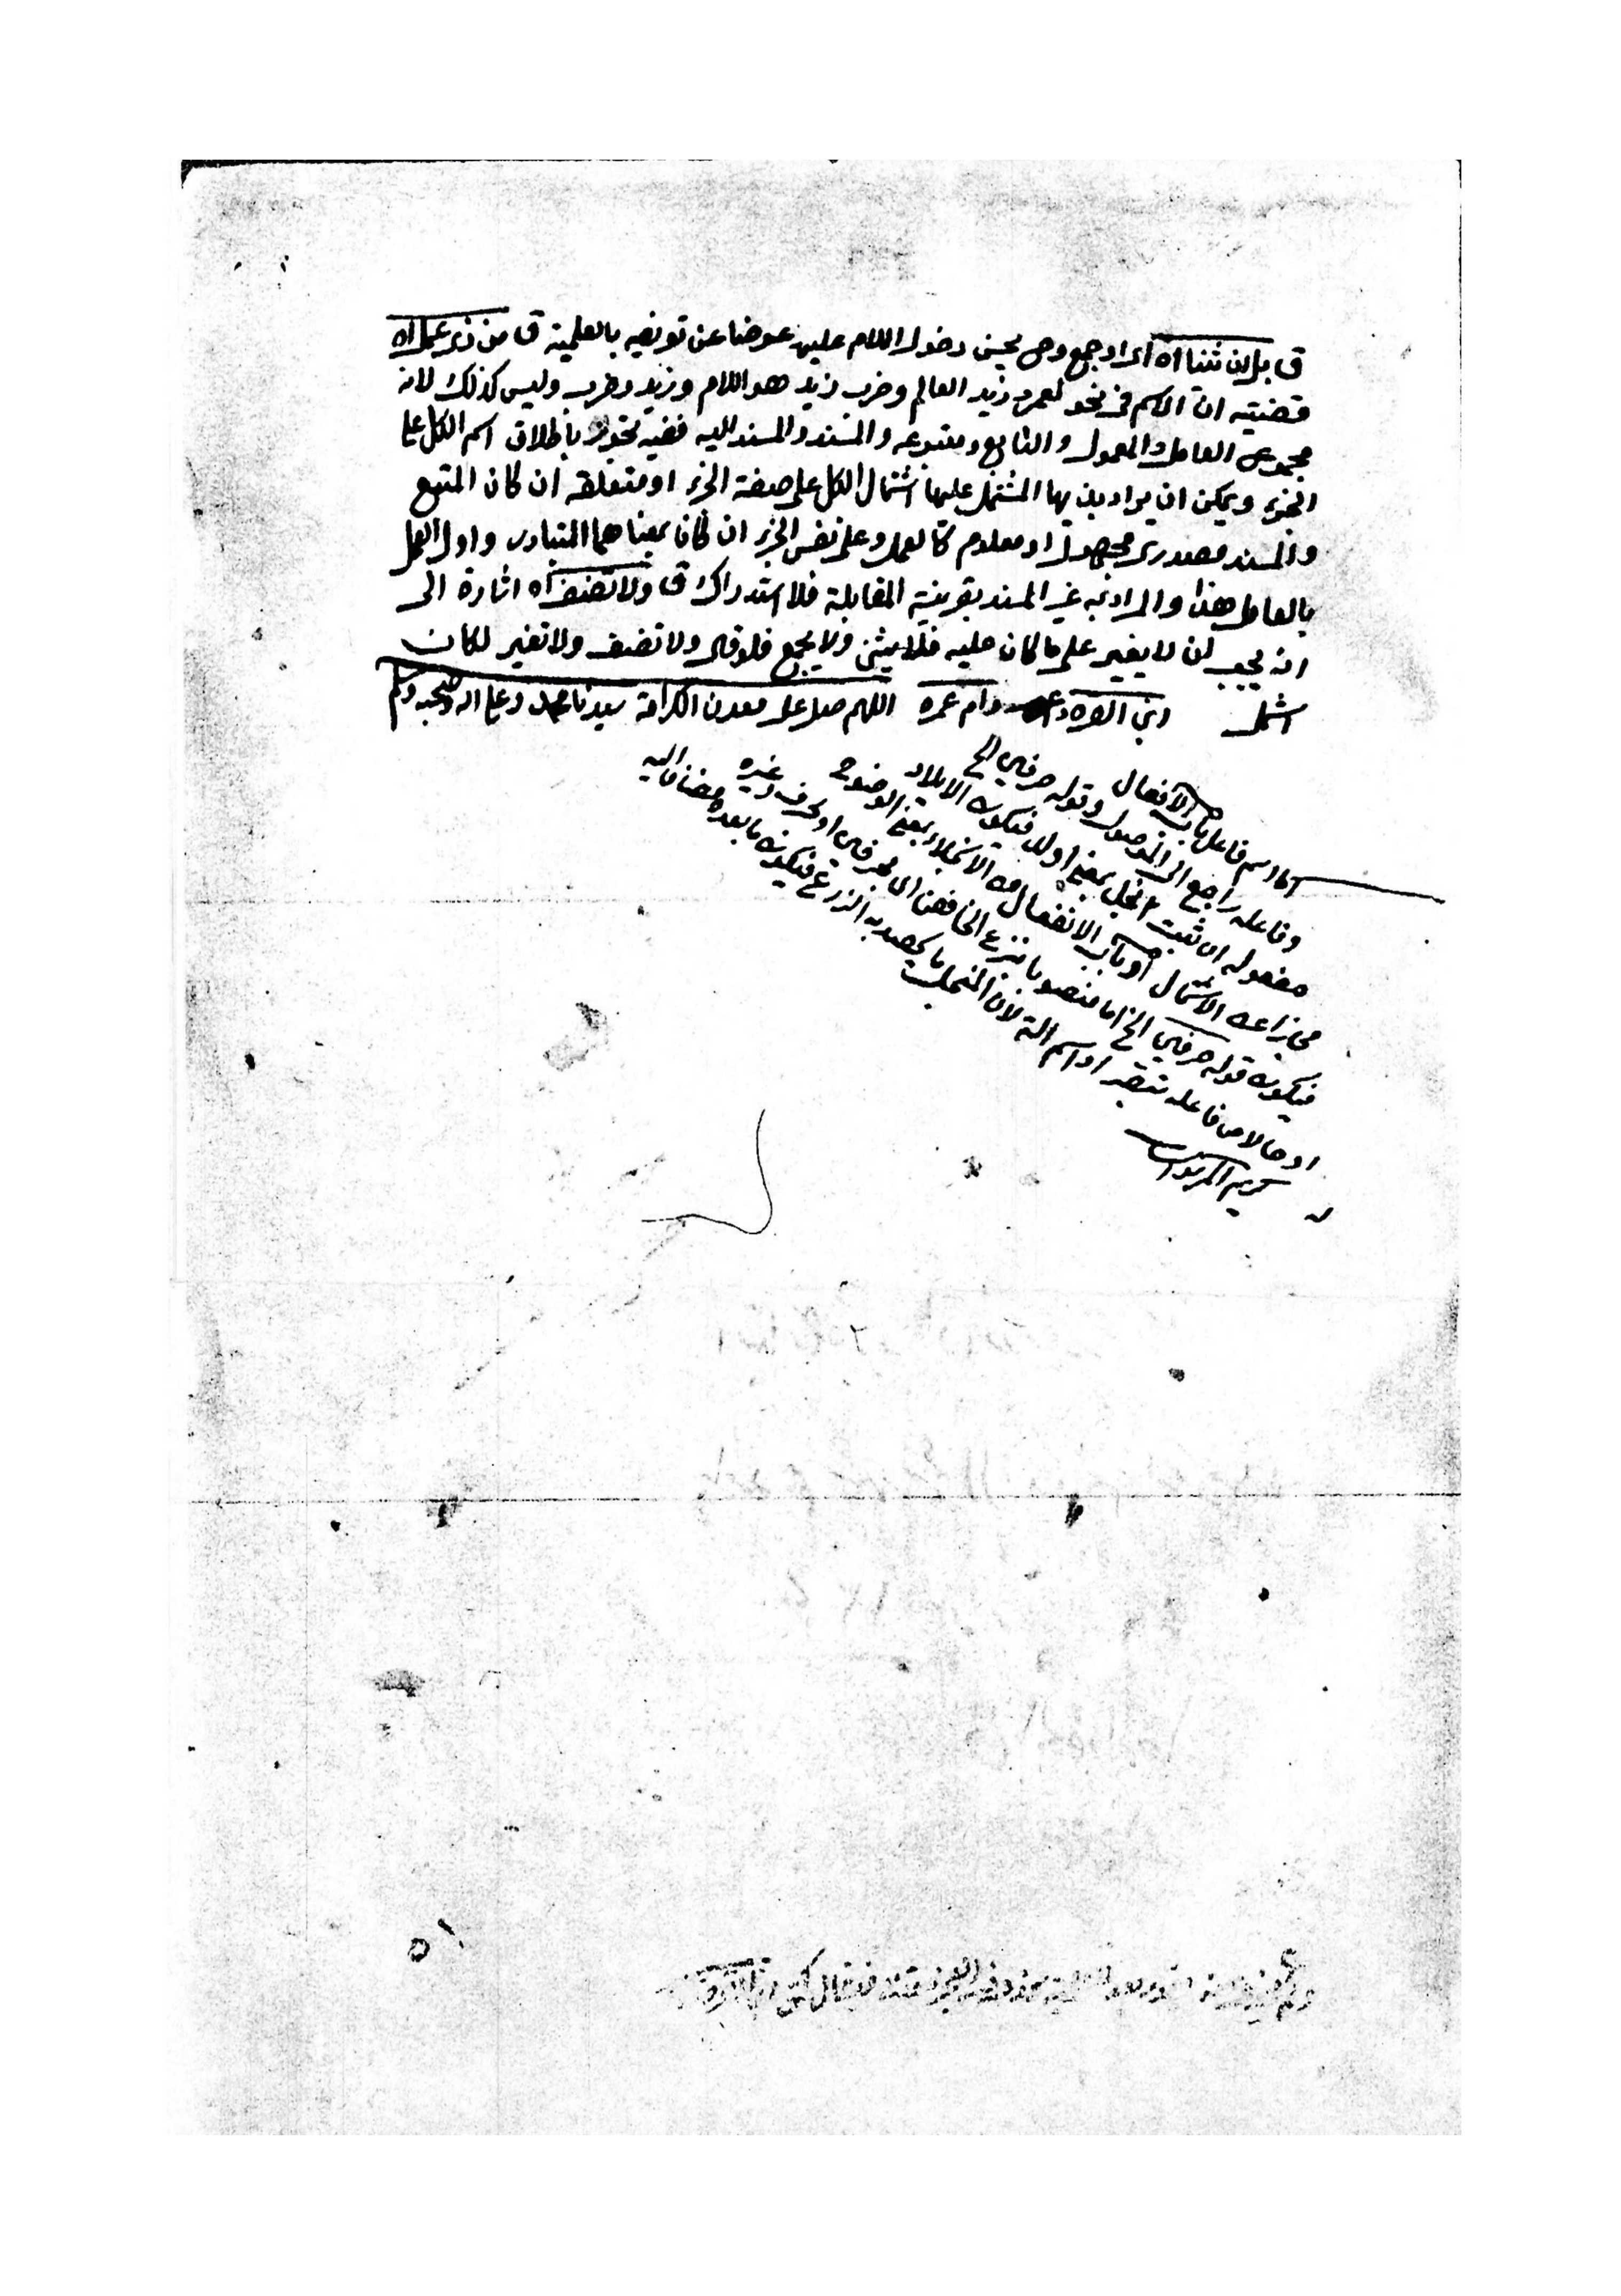 ق بل ان ثنا اه اى او جمع وح يحسن دخول اللام عليه عوضا عن تعريفه بالعلمية ق من ذى عمل اه
قضيته ان الاسم فى نحو لعمرو زيد العالم وضرب زيد هو اللام وزيد وضرب وليس كذلك لانه
مجموع العامل والمعمول والتابع ومتبوعه والمسند والمسند اليه ففيه تجوز باطلاق اسم الكل على
الجزء ويمكن ان يراد بها المشتمل عليها اشتمال الكل على صفة الجزء او متعلقه ان كان المتبع
والمسند مصدرى مجهول او معلوم كالعمل وعلى نفس الجزء ان كانا بمعناهما المتبادر واول العمل
بالعامل هذا والمراد به غير المسند بقرينة المقابلة فلا استدراك ق ولا تضف اه اشارة الى
انه يجب ان لا يغير على ما كان عليه فلا يثنى ولا يجمع فلو قال ولا تضف ولا تغير لكان
اشمل ابن القره داغى دام عمره اللهم صل على معدن الكرامة سيدنا محمد وعلى اله وصحبه وسلم
اما اسم فاعل باب الافعال
وفاعله راجع الى الموصول وقوله حرفى الخ
مفعوله ان ثبت انجل بمعنى اولد فيكون الايلاد
مجازا عن الاشتمال او باب الانفعال من الانجلاء بمعنى الوضوح
فيكون قوله حرفى الخ اما منصوبا بنزع الخافض اى بحرفى او بحرف وغيره
او حالا من فاعله او اسم الة لان المنجل ما يحصد به الزرع فيكون ما بعده مضافا اليه